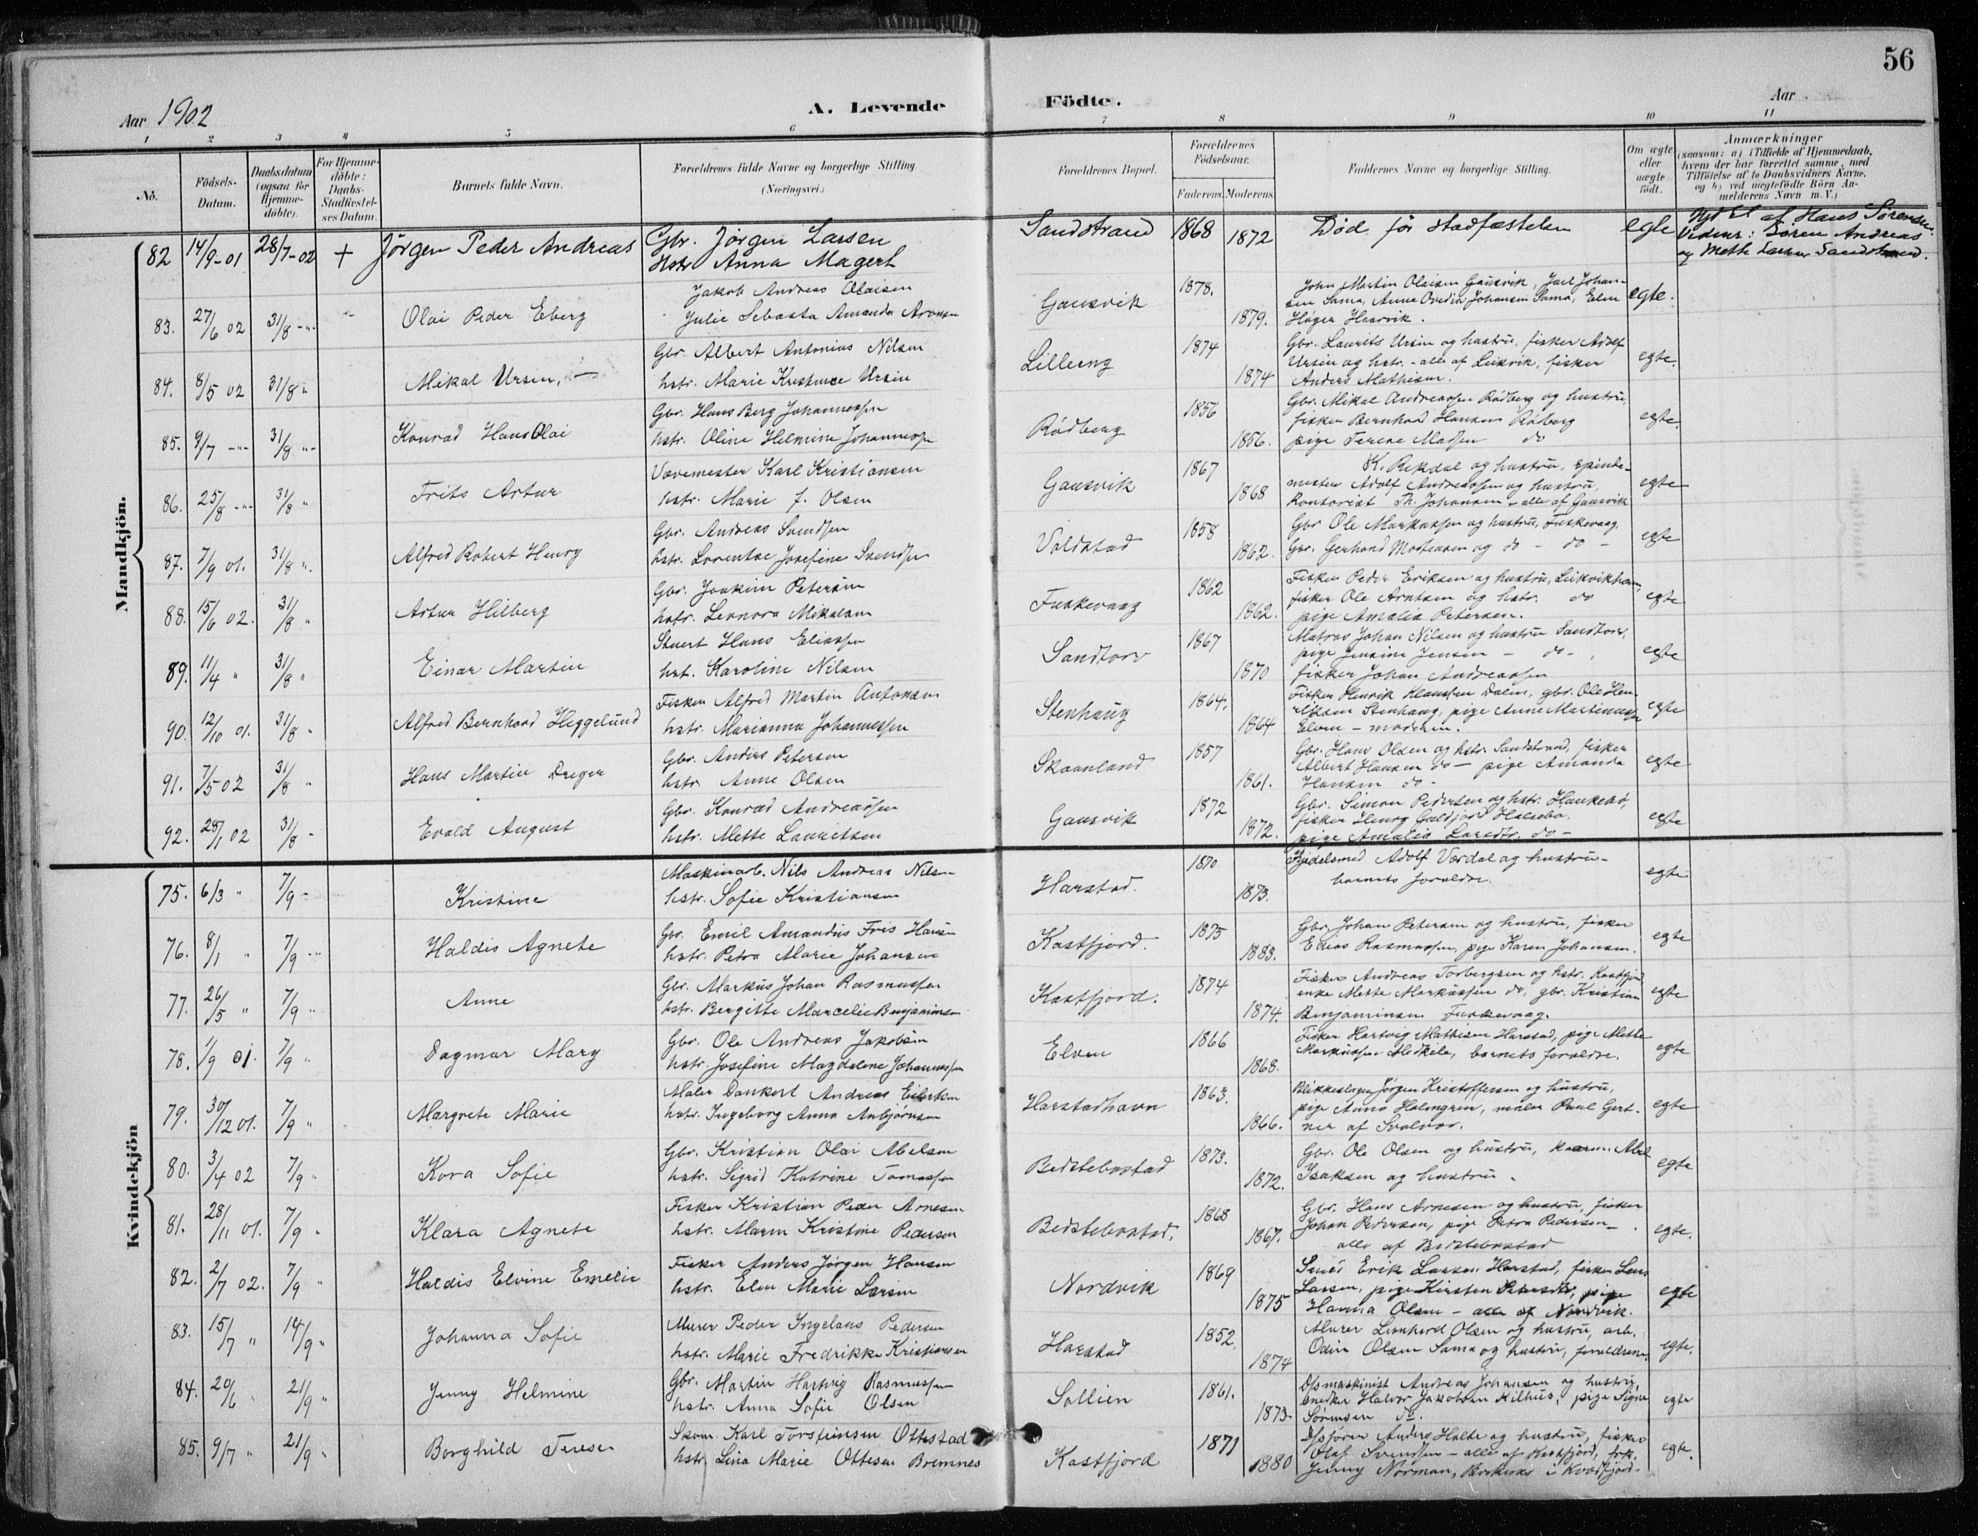 56
Aar 1902
A. Levende
Födte.
Aar
1 2 3 4 5 6 7 8 9 10 11
No.
Födsels-Datum.
Daabsdatum (ogsaa for Hjemme-döbte).
For Hjemme-döbte: Daabs-Stadfæstel-ses Datum.
Barnets fulde Navn.
Forældrenes fulde Navne og borgerlige Stilling. (Næringsvei.)
Forældrenes Bopæl.
Forældrenes Födselsaar.
Faderens. Moderens.
Faddernes Navne og borgerlige Stilling.
Om ægte eller uægte födt.
Anmærkninger
(saasom: a) i Tilfælde af Hjemmedaab, hvem der har forrettet samme, med Tilföielse af to Daabsvidners Navne, og b) ved uægtefödte Börn An-melderens Navn m. V.)
Mandkjön.
82 14/9-01 28/7-02 + Jørgen Peder Andreas Gbr. Jørgen Larsen
Hstr Anna Magert
Sandstrand 1868 1872 Død før stadfæstelsen egte
af Hans Sørensen.
Vidner: Søren Andreas
og Mette Sandstrand.
83. 27/6 02 31/8 Olai Peder Eberg Jakob Andreas Olaisen
Julie Sebasta Amanda
Gausvik 1878. 1879. John Martin Olaisen Gausvik, Johan-
sen Sama, Anne Johansen Sama,
egte.
84. 8/5 02 31/8 Mikal Ursin. Gbr. Albert Antonius Nilsen
hstr. Marie Ursin
Lilleeng 1874 1874 Gbr. Laurits Ursin og hustru, fisker Adolf
Ursin og hstr. - alle af Leikvik, fisker
Anders Mathisen. egte.
85. 9/7 31/8 Konrad Hans Olai Gbr. Hans Berg Johannessen
hstr. Oline Helmine Johannessen
Rødberg 1856 1856. Gbr. Mikal Andreassen Rødberg og hustru,
fisker Bernhard Hansen Røberg
pige Terese Madsen do egte.
86. 25/8 31/8 Frits Artur Vævemester Karl Kristiansen
hstr. Marie f. Olsen
Gausvik 1867 1868 K. Rekdal og hustru, spinde-
mester Adolf Andreassen og hustru,
Kontorist Th. Johansen - alle af Gausvik egte
87. 7/9 01. 31/8 Alfred Robert Henry Gbr. Andreas Svendsen
hstr. Lorentse Josefine Svendsen
Voldstad 1858 1862. Gbr Ole Markussen og hustru, Fuskevaag
Gbr. Gerhard Mortensen og do - do - egte
88. 15/6 02. 31/8 Artur Hilberg Gbr. Joakim Petersen
hstr. Leonora Mikalsen
Fuskevaag 1862 1862. Fisker Peder Eriksen og hustru,
fisker Ole Arntsen og hstr. do
pige Amalia Petersen. egte
89. 11/4 31/8 Einar Martin Stuert Hans Eliassen
hst. Karoline Nilsen
Sandtorv 1867 1870 Matros Johan Nilsen og hustru Sandtorv,
pige Jensine Jensen - do -
fisker Johan Andreassen egte
90. 12/10 01. 31/8 Alfred Bernhard Heggelund Fisker Alfred Martin Antonsen
hstr. Marianna Johannessen
Stenhaug 1864. 1864 Fisker Henrik Klaussen Dalen, gbr. Ole Hen-
riksen Stenhaug, pige Anne
Elven - moderen. egte
91. 7/5-02 31/8 Hans Martin Dreyer Gbr. Anders Peterson
hstr. Anne Olsen
Skaanland 1857 1861. Gbr. Hans Olsen og hstr. Sandstrand, fisker
Albert Hansen do - pige Amanda
Hansen do - egte
92. 28/1 02 31/8 Evald August Gbr. Konrad Andreassen
hstr. Mette Lauritsen
Gausvik 1872 1872. Gbr. Simon Pedersen og hstr.
fisker Henry
pige Amalia do - egte
Kvindekjön
75. 6/3 7/9 Kristine Maskinarb. Nils Andreas Nilsen
hstr. Sofie Kristiansen
Harstad. 1870 1873. Adolf Værdal og hustru -
barnets forældre. egte
76. 8/1 7/9 Haldis Agnete Gbr. Emil Amandus Fris Hansen
hstr. Petra Marie Johansen
Kastfjord. 1875 1883. Gbr. Johan Petersen og hustru, fisker
Rasmussen, pige Karen Johansen. egte
77. 26/5 7/9 Anne Gbr. Markus Johan Rasmussen
hstr. Bergitte Marcelie Benjaminsen
Kastfjord. 1874 1874. Fisker Andreas Torbergsen og hstr. Kastfjord
enke Mette Markussen do, gbr. Kristian
Benjaminsen Fuskevaag. egte
78. 1/9 01. 7/9 Dagmar Mary Gbr. Ole Andreas Jakobsen
hstr. Josefine Magdalene Johannessen
Elven 1866 1868. Fisker Hartvig Mathisen Harstad, pige Mette
Markussen Medkila, barnets forældre. egte
79. 30/12 01. 7/9 Margrete Marie Maler Dankert Andreas
hstr. Ingeborg Anna Anbjørnsen
Harstadhavn 1863. 1866. Blikkenslager Jørgen Kristoffersen og hustru,
pige Anna Holmgren, maler Paul Gert-
ner af Svolvær. egte
80. 3/4 02 7/9 Kora Sofie Gbr. Kristian Olai Abelsen
hstr. Sigrid Katrine Tomassen
Bedstebostad 1873. 1872. Gbr. Ole Olsen og hustru, Abel
Isaksen og hustru. egte
81. 28/11 01. 7/9 Klara Agnete Fisker Kristian Peder Arnesen
hstr. Maren Kristine Pedersen
Bedstebostad. 1868 1867. Gbr. Hans Arnesen og hustru, fisker
Johan Pedersen, pige Petra Pedersen -
alle af Bedstebostad egte.
82. 2/7 02. 7/9 Haldis Elvine Emelie Fisker Anders Jørgen Hansen
hstr. Elen Marie Larsen
Nordvik 1869 1875 Smed Erik Larsen Harstad, fisker Lars
Larsen, pige Kirsten pige
Hanna Olsen - alle af Nordvik. egte
83. 15/7 14/9 Johanna Sofie Murer Peder Ingelaus Pedersen
hstr. Marie Fredrikke Kristiansen
Harstad 1852. 1874 Murer Leonhard Olsen og hustru, arb.
Odin Olsen Sama og hustru, forældrene. egte.
84. 20/6 21/9 Jenny Helmine Gbr. Martin Hartvig Rasmussen
hstr. Anna Sofie Olsen
Sollien 1861. 1873. Dsmaskinist Andreas Johansen og hustru,
snedker Halvor Jakobsen Kilhus, pige Signe
Sørensen do. egte
85. 9/7 21/9 Borghild Terese Skom. Karl Torsteinsen Ottestad
hstr. Lina Marie Ottesen Bremnes
Kastfjord 1871 1880 Dsfører Anders Holte og hustru, fisker
Olaf Svendsen - alle af Kastfjord, frk.
Jenny Norman, i Kvæfjord. egte.